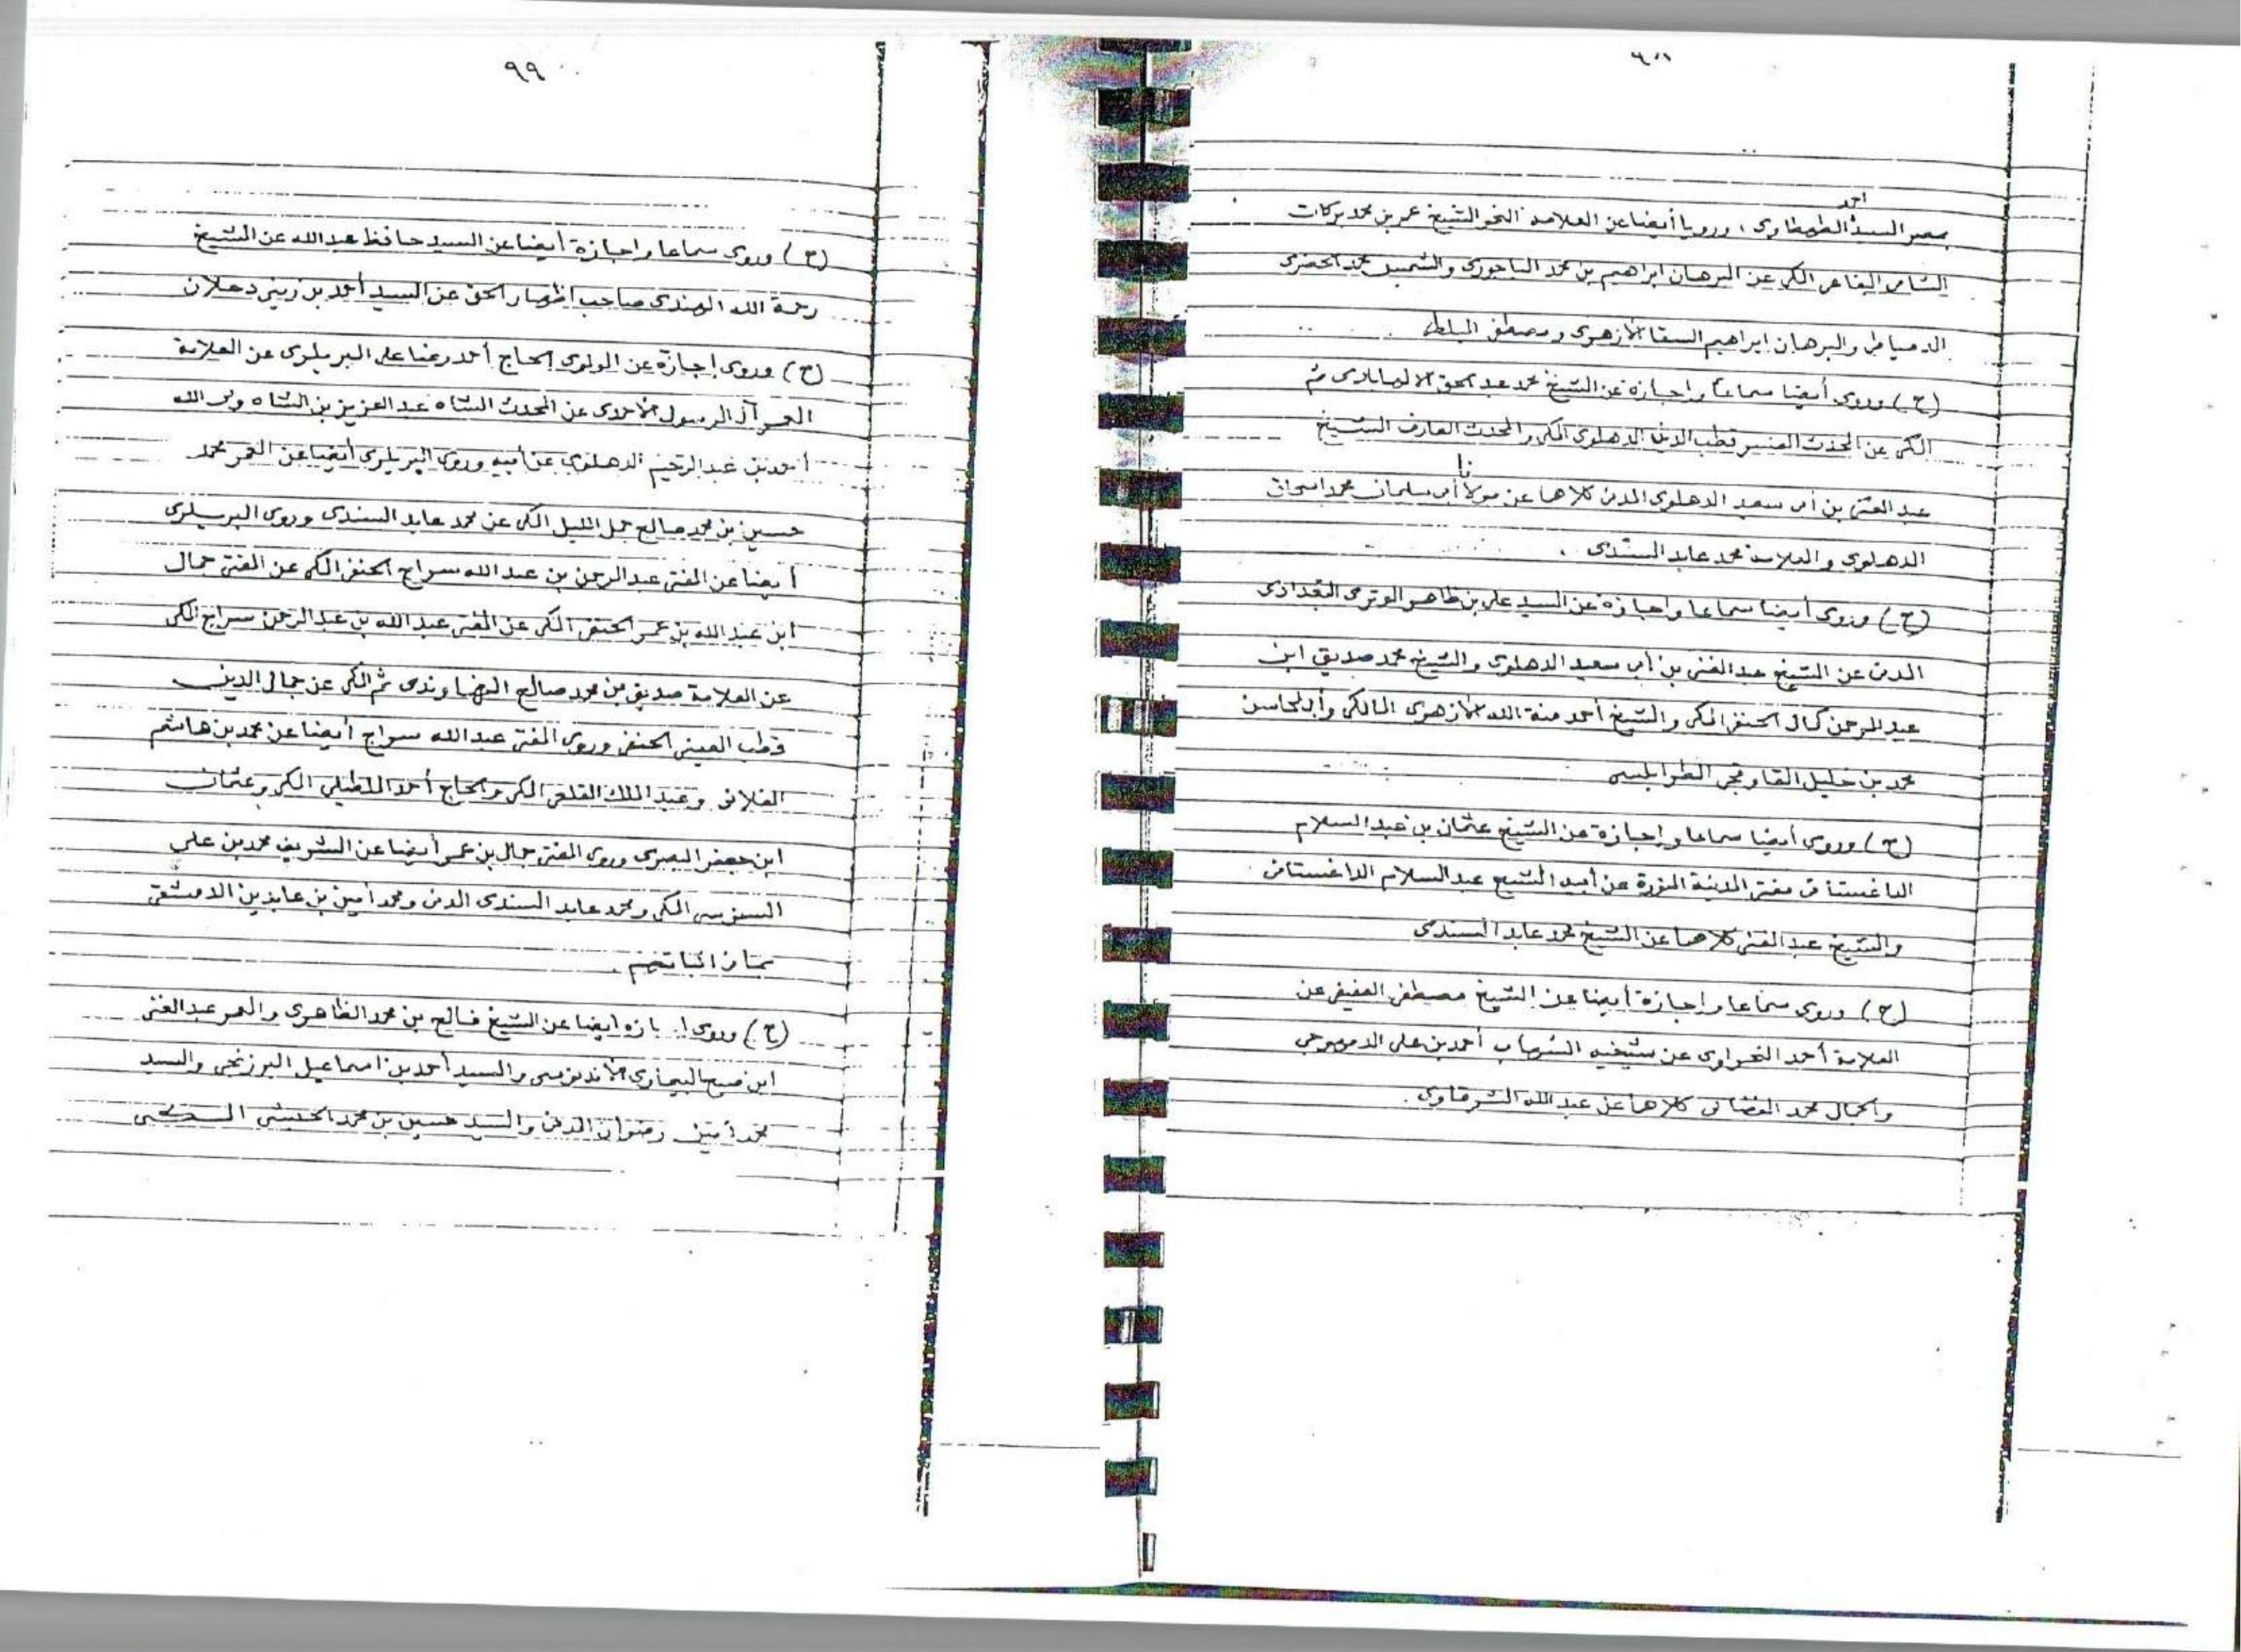 ٩٨
احمد
بمصر السيد الطهطاوى ، ورويا أيضا عن العلامة النحو الشيخ عمر بن محمد بركات
الشامى البقاعى المكى عن البرهان ابراهيم بن محمد الباجورى والشمس محمد الخضرى
الدمياطى والبرهان ابراهيم السقا الأزهرى ومصطفى المبلط
(ح) وروى أيضا سماعا واجازة عن الشيخ محمد عبد الحق الالهابادى ثم
المكى عن المحدث المفسر قطب الدين الدهلوى المكى والمحدث العارف الشيخ
عبد الغنى بن أبى سعيد الدهلوى المدنى كلاهما عن مولانا أبى سليمان محمد اسحاق
الدهلوى والعلامة محمد عابد السندى .
(ح) وروى أيضا سماعا واجازة عن السيد على بن ظاهر الوترى البغدادى
المدنى عن الشيخ عبد الغنى بن أبى سعيد الدهلوى والشيخ محمد صديق ابن
عبد الرحمن كمال الحنفى المكى والشيخ أحمد منة الله الأزهرى المالكى وأبى المحاسن
محمد بن خليل القاوقجى الطرابلسى
(ح) وروى أيضا سماعا واجازة عن الشيخ عثمان بن عبد السلام
الداغستانى مفتى المدينة المنورة عن أبيه الشيخ عبد السلام الداغستانى
والشيخ عبد الغنى كلاهما عن الشيخ محمد عابد السندى
(ح) وروى سماعا واجازة أيضا عن الشيخ مصطفى العفيفى عن
العلامة أحمد النحراوى عن شيخيه الشهاب أحمد بن على الدمهوجى
والجمال محمد الفضالى كلاهما عن عبد الله الشرقاوى .
٩٩
(ح) وروى سماعا واجازة أيضا عن السيد حافظ عبد الله عن الشيخ
رحمة الله الهندى صاحب اظهار الحق عن السيد أحمد بن زينى دحلان
(ح) وروى إجازة عن المولوى الحاج أحمد رضا على البريلوى عن العلامة
آل الرسول الأحمدى عن المحدث الشاه عبد العزيز بن الشاه ولى الله
أحمد بن عبد الرحيم الدهلوى عن أبيه وروى البريلوى أيضا عن المعمر محمد
حسين بن محمد صالح جمل الليل المكى عن محمد عابد السندى وروى البريلوى
أيضا عن المفتى عبد الرحمن بن عبد الله سراج الحنفى المكى عن المفتى جمال
ابن عبد الله بن عمر الحنفى المكى عن المفتى عبد الله بن عبد الرحمن سراج المكى
عن العلامة صديق بن محمد صالح النهاوندى ثم المكى عن جمال الدين
قطب العينى الحنفى وروى المفتى عبد الله سراج أيضا عن محمد بن هاشم
الفلانى وعبد الملك القلعى المكى والحاج أحمد المكى وعثمان
ابن جعفر البصرى وروى المفتى جمال بن عمر أيضا عن الشريف محمد بن على
السنوسى المكى ومحمد عابد السندى المدنى ومحمد أمين بن عابدين الدمشقى
بما فى اثباتهم .
(ح) وروى أيضا عن الشيخ فالح بن محمد الظاهرى والمعمر عبد الغنى
ابن صبيح البيمارى الأندونيسى والسيد أحمد بن اسماعيل البرزنجى والسيد
محمد أمين رضوان المدنى والسيد حسين بن محمد الحبشى المكى